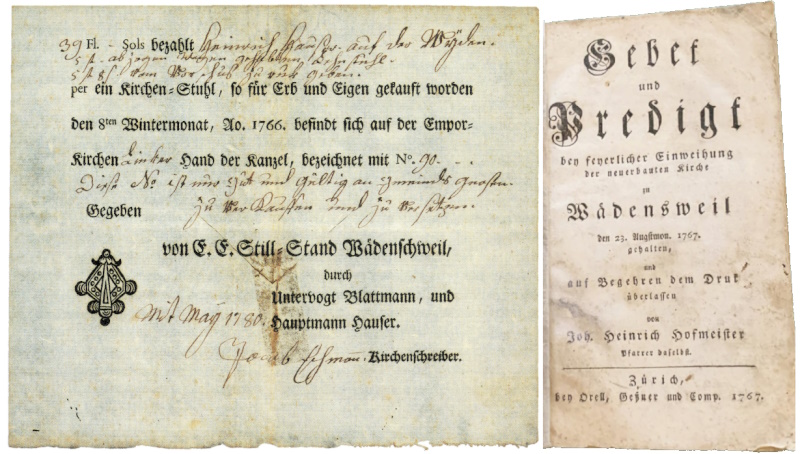 39 Fl. - Sols bezahlt Heinrich Hauser auf der Wyden.
per ein Kirchen-Stuhl, so für Erb und Eigen gekauft worden
den 8ten Wintermonat, Ao. 1766. befindt sich auf der Empor-
Kirchen Linker Hand der Kanzel, bezeichnet mit No. 90. - -
Diese No ist nur gut und gültig an gmeinds gnossen
Gegeben zu verkauffen und zu versetzen.
von E. E. Still-Stand Wädenschweil,
durch
Untervogt Blattmann, und
Mit May 1780. Hauptmann Hauser.
Jacob Eschmann, Kirchenschreiber.
Gebet
und
Predigt
bey feyerlicher Einweihung
der neuerbauten Kirche
zu
Wädensweil
den 23. Augstmon. 1767.
gehalten,
und
auf Begehren dem Druk
überlassen
von
Joh. Heinrich Hofmeister
Pfarrer daselbst.
Zürich,
bey Orell, Geßner und Comp. 1767.